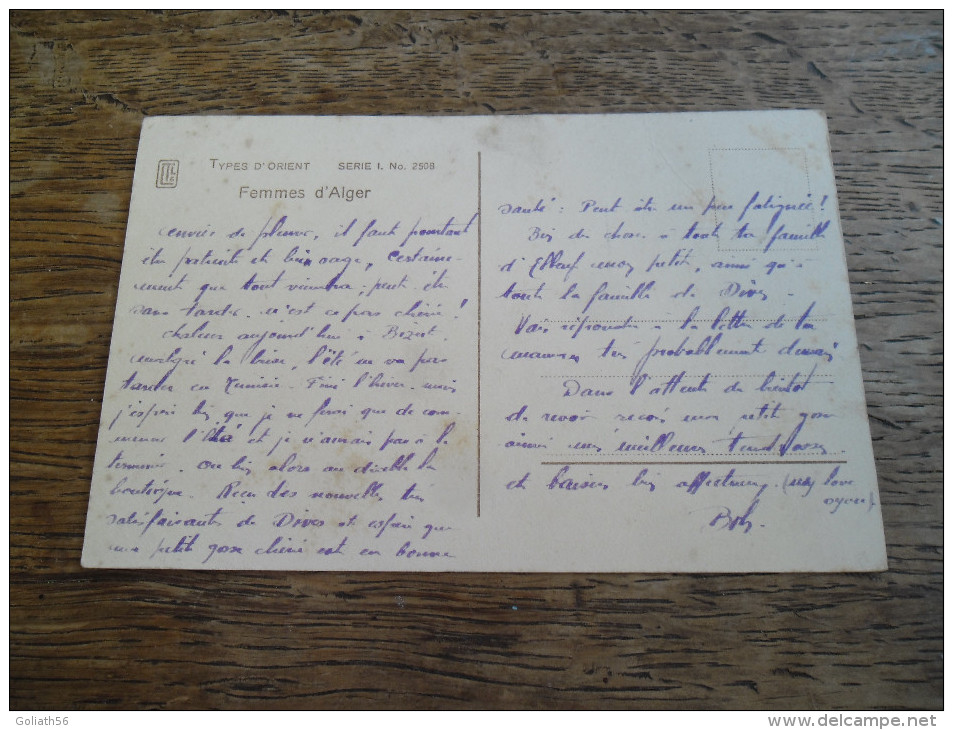 TYPES D'ORIENT SERIE I. No. 2508
Femmes d'Alger
envie de pleurer, il faut pourtant
être patient et bien sage, certaine-
ment que tout viendra, peut être
sans tarder n'est ce pas chérie!
chaleur aujourd'hui à Bizert.
malgré la brise, l'été ne va pas
tarder en Tunisie. Fini l'hiver, mais
j'espère bien que je ne ferai que de com-
mencer l'été et je n'aurais pas à le
terminer. Ou bien alors au diable la
boutique. Reçu des nouvelles très
satisfaisantes de Dives et espère que
mon petit gosse chéri est en bonne
santé: Peut être un peu fatiguée!
Bien de chose à toute ta famille
d'Elbeuf mon petit, ainsi qu'à
toute la famille de Dives.
Vais répondre à la lettre de ta
maman très probablement demain
Dans l'attente de bientôt
te revoir reçois mon petit gosse
ainsi mes meilleures tendresses
et baisers bien affectueux. (my love
Bob.
Goliath56
www.delcampe.net